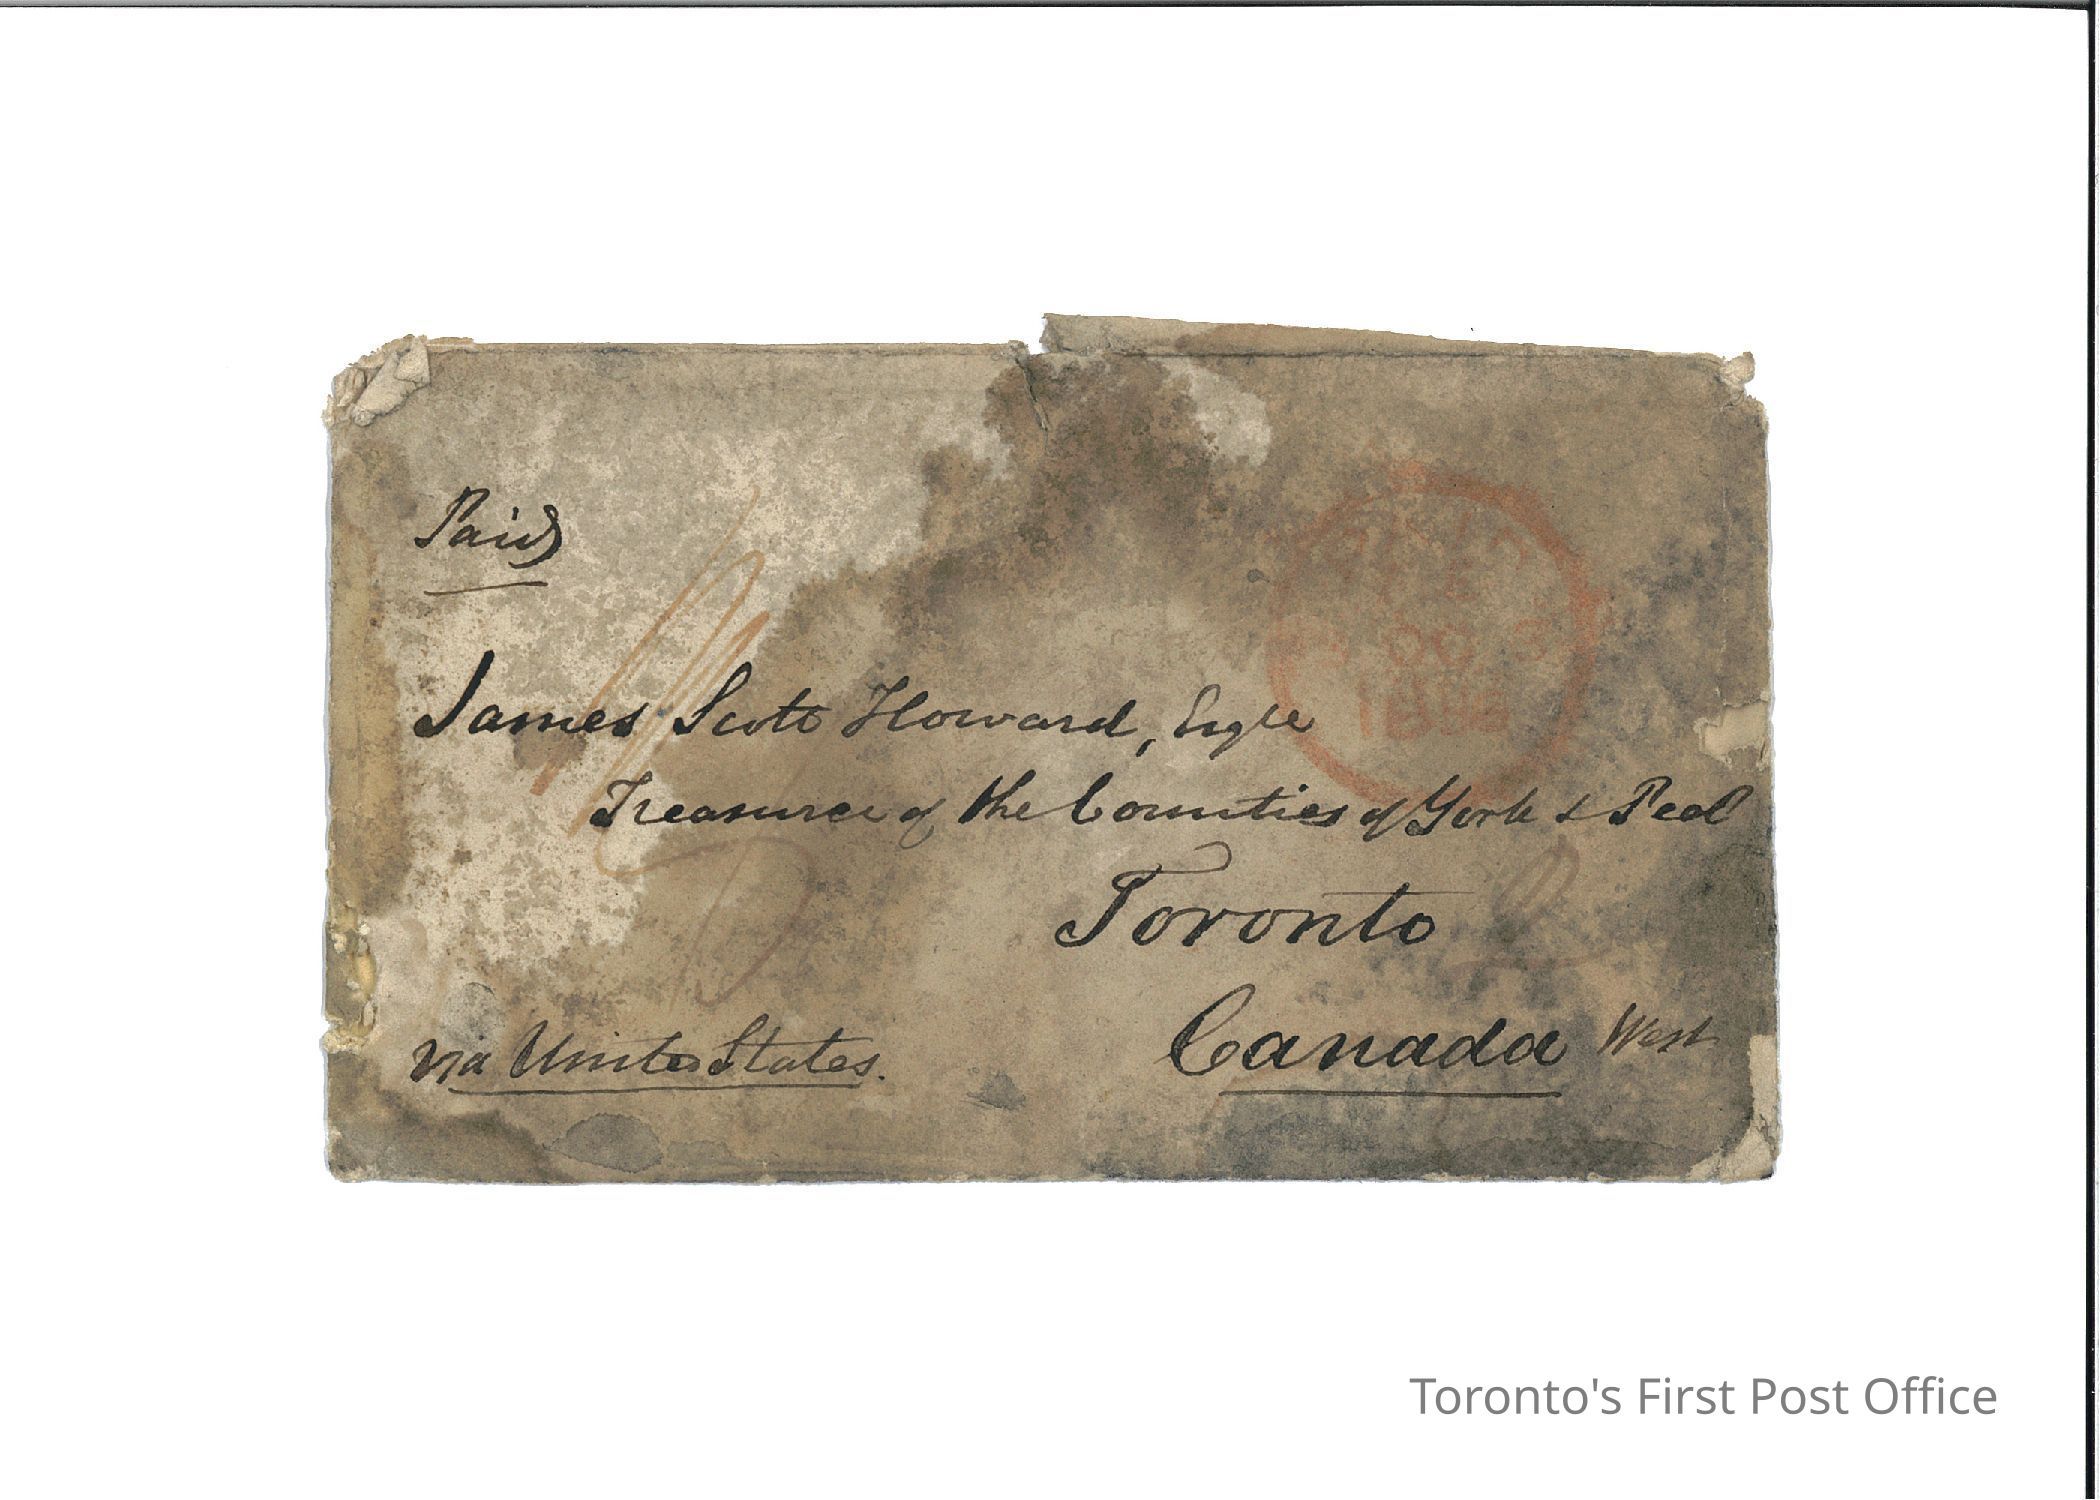 Paid
James Scott Howard, Esqre
Treasurer of the Counties of York & Peel
Toronto
Canada West
via United States.
OC 3
Toronto's First Post Office